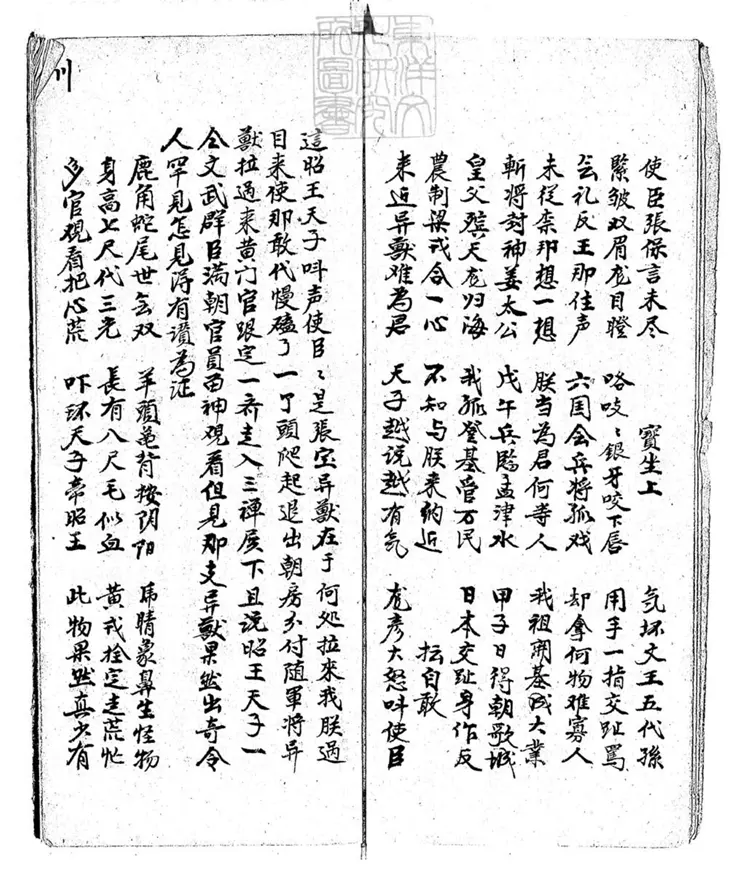 使臣張保言未尽　寳坐上　气坏文王五代孫
緊皱双眉龙目瞪　咯吱〻銀牙咬下唇　用手一指交趾罵
无礼反王那住声　六国会兵将孤戏　却拿何物难寡人
未従栾邦想一想　朕当為君何等人　我祖開基成大業
斬将封神姜太公　戊午兵臨孟津水　甲子日得朝歌城
皇父殡天龙归海　我孤登基管万民　日本交趾身作反
農制梁戎合一心　不知与朕来纳近　抎自敢
来近异獸难為君　天子越说越有气　龙彦大怒呌使臣
這昭王天子呌声使臣〻是張宝异獸在于何処拉来我朕過
目来使那敢代慢磕了一丁頭爬起退出朝房分付随軍将异
獸拉過来黄门官跟定一齐走入三禅展下且说昭王天子一
仝文武群臣满朝官員留神观看但見那支异獸果然出奇令
人罕見怎見淂有讚為证
鹿角蛇尾世无双　羊頭龟背按阴阳　馬睛象鼻生怪物
身高七尺代三光　長有八尺毛似血　黄戎拴定走荒忙
多官观看把心荒　吓坏天子帝昭王　此物果然真少有
川
東洋文化研究所圖書